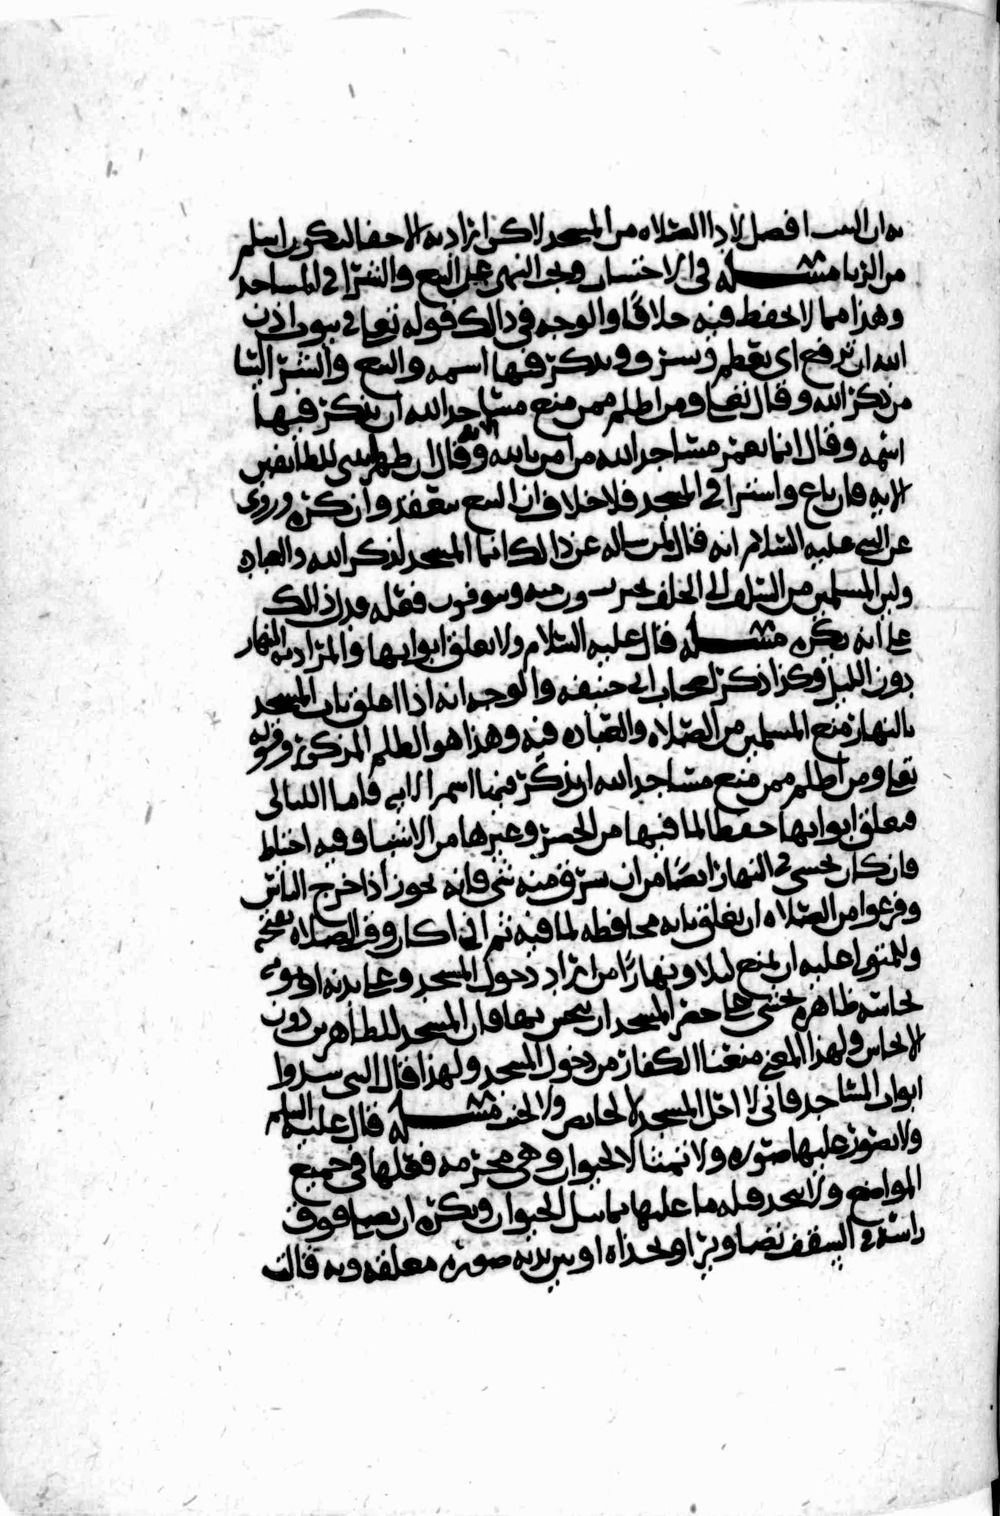 به ان البيت افضل لاداا الصلاه من المسجد لاكن اراد به الاخفا ليكون اسلم
من الريا مسئله في الاختيار ويجي النهي عن البيع والشرا في المساجد
وهذا مما لا يحفظ فيه خلافا والوجه في ذالك قوله تعالى في بيوت اذن
الله ان ترفع اي تعظم وتشرف ويذكر فيها اسمه والبيع والشرا
من ذكر الله وقال تعالى ومن اظلم ممن منع مساجد الله ان يذكر فيها
اسمه وقال انما يعمر مساجد الله من امن بالله وقال ان طهرا بيتي للطائفين
الايه فان باع واشترا في المسجد فلا خلاف ان البيع ينعقد وان كره وروي
عن النبي عليه السلام انه قال لمن ساله عن ذالك انما المسجد لذكر الله والعباده
ولان المسلمين من السلف الى الخلف منه فعله فدل ذالك
على انه يكره مسئله قال عليه السلام ولا تغلق ابوابها والمراد به النهار
دون الليل وكذا ذكر اصحاب ابي حنيفه والوجه انه اذا اغلق باب المسجد
بالنهار منع المسلمين من الصلاه والعباده فيه وهذا هو الظلم المذكور في قوله
تعالى ومن اظلم ممن منع مساجد الله ان يذكر فيها اسمه الايه فاما الليالي
فيغلق ابوابها حفظا لما فيها من الحصر وغيرها من الاشيا وفيه احتياط
فان كان يخشى في النهار ايضا من ان يسرق منه شي فانه يجوز اذا خرج الناس
وفرغوا من الصلاه ان يغلق بابه محافظه لما فيه ثم اذا كان وقت الصلاه يفتح
وللمتولي عليه ان يمنع ليلا ونهارا من اراد دخول المسجد وعلى بدنه او ثوبه
نجاسه ظاهره يخشى على حصر المسجد ان ينجس بها فان المسجد للطاهرين دون
الانجاس ولهذا المعنى منعنا الكفار من دخول المسجد ولهذا قال النبي سدوا
ابواب المساجد فاني لا احل المسجد لا لحايض ولا لجنب مسئله قال عليه السلم
ولا تصور عليها صوره ولا تمثالا لحيوان وهي محرمه فعلها في جميع
المواضع ولا يتخذ قبله ما عليها تماثيل الحيوان ويكره ان يصلي فوق
راسه في السقف تصاوير او بحذاه او بين يديه صوره معلقه وبه قالت